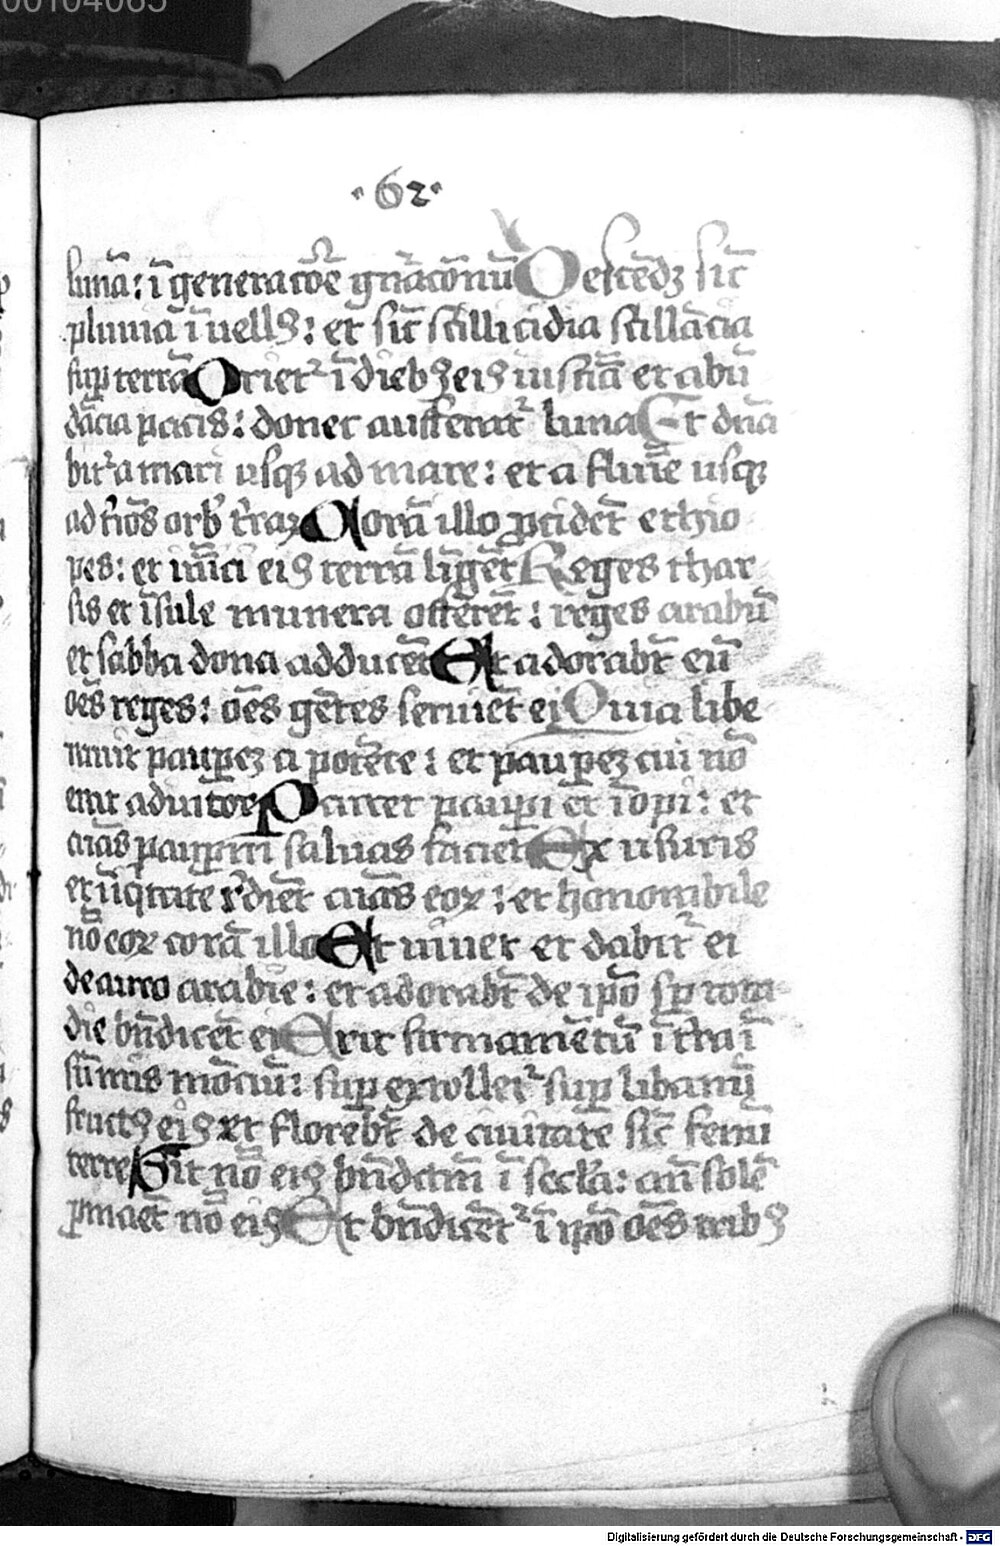 00104065
·62·
lunā: ī generacōē gn̄acōnū Descēdꝫ sic̄
pluuiā ī uellꝰ: et sic̄ stillicidia stillācia
suꝑ terrā Orietᷣ ī diebꝫ eiꝰ iusticiā et abū
dācia pacis: donec aufferatᷣ luna Et dn̄a
bitᷣ a mari usqꝫ ad mare: et a flumīe usqꝫ
ad t̄mīos orbꝭ t̄raꝝ Corā illo ꝓcidēt ethio
pes: et inīmici eiꝰ terrā līgēt Reges thar
sis et īsule munera offerēt: reges arabū
et sabba dona adducēt Et adorabt̄ eū
oēs reges: oēs gētes seruiēt ei Quia libe
rauit pauꝑeꝫ a potēte: et pauꝑeꝫ cui nō
erat adiutor Parcet pauꝑi et īopi: et
aīas pauꝑum saluas faciet Ex usuris
et īiq̄tate rᷣdiet aīas eoꝝ: et honorabile
nōmē eoꝝ corā illo Et uiuet et dabitᷣ ei
de auro arabie: et adorabt̄ de ip̄o sꝑ tota
die bn̄dicēt ei Erit firmamētū ī t̄ra ī
sūmis mōciū: suꝑ extolletᷣ suꝑ libanū
fructꝰ eiꝰ et florebt̄ de ciuitate sic̄ fenū
terre Sit nō eiꝰ bn̄dctm̄ ī secl̄a: an̄ solē
ꝑmaēt nō eiꝰ Et bn̄dicētᷣ ī ip̄o oēs tribꝰ
Digitalisierung gefördert durch die Deutsche Forschungsgemeinschaft - DFG